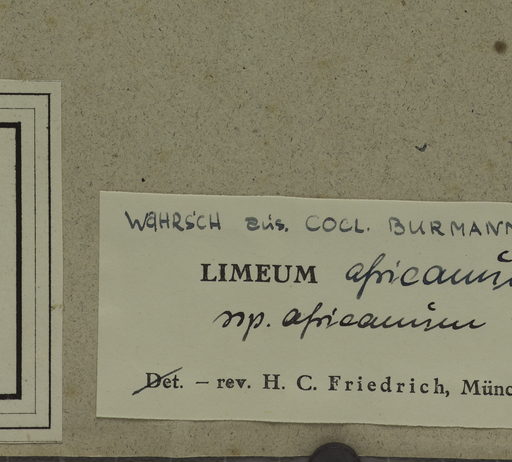 WAHRSCH aus. COCL. BURMANN
LIMEUM africanum
ssp. africanum
Det. – rev. H. C. Friedrich, Münc